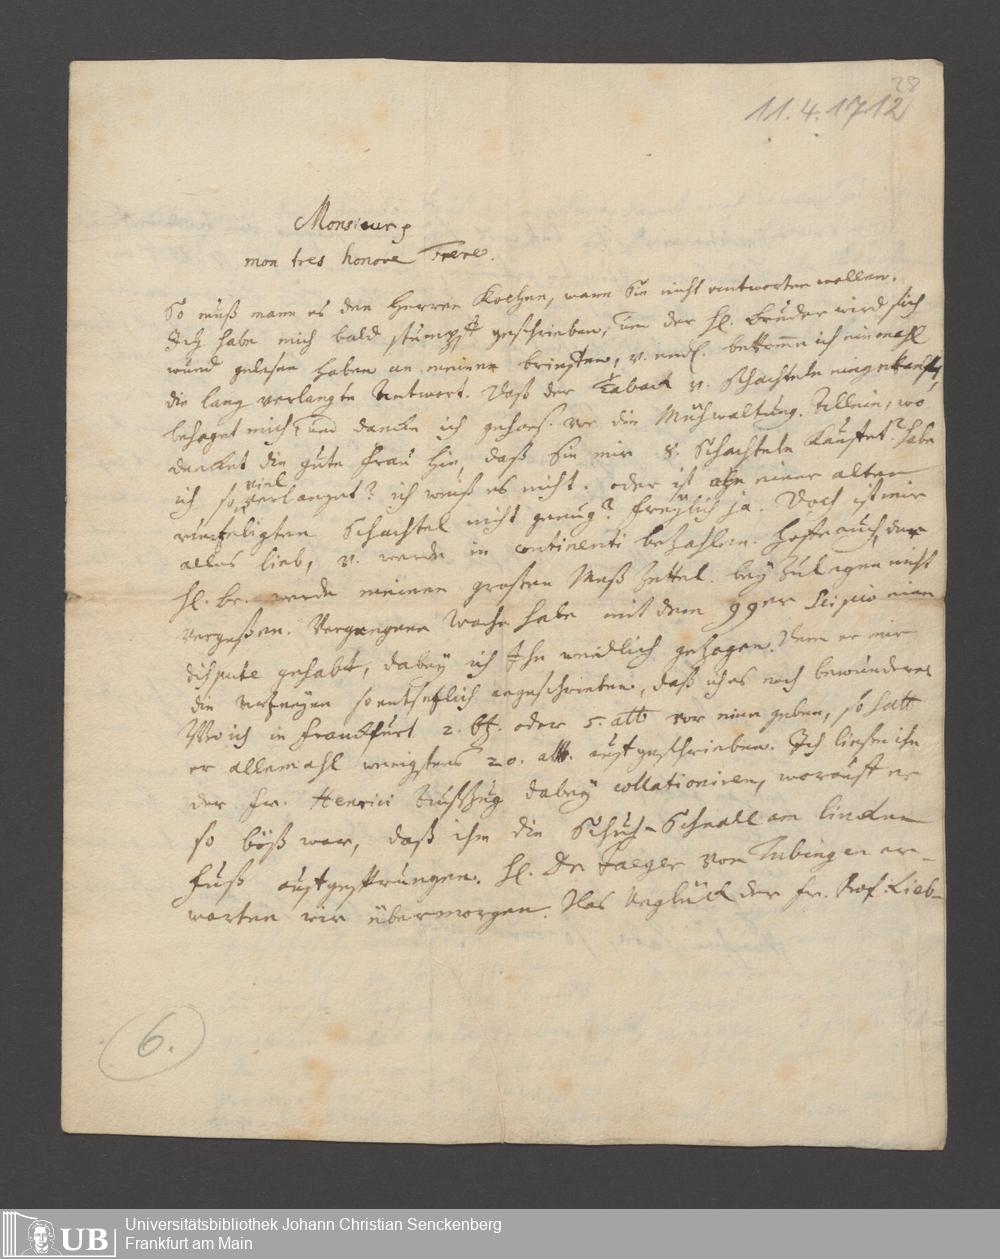 28
11.4.1712
Monsieur,
mon tres honore Frere.
So muß mann es den Herren Kochen, wann Sie nicht antworten wollen.
Ich habe mich bald stumpff geschrieben, und der H. Bruder wird sich
wund gelesen haben an meinen brieffen, v. endl. bekomme ich ein mahl
die lang verlangte Antwort. Daß der Taback v. Schachteln eingekaufft,
behaget mich, und dancke ich gehors. vor die Mühwaltung. Allein, wo
dencket die gute Frau hin, daß Sie mir 8. Schachteln kauffet? habe
ich so viel verlanget? ich weiß es nicht. oder ist an einer alten
Schachtel nicht genug? freylich ja. Doch ist mir
alles lieb, v. werde in continenti bezahlen. Hoffe auch, der
H. br. werde meinen großen Meß Zettel bey zulegen nicht
vergeßen. Vergangene Woche habe mit dem Scipio eine
dispute gehabt, dabey ich Ihn weidlich gezogen. Denn er mir
die Artzneyen so entsetzlich angeschrieben, daß ich es noch bewundere.
Wo ich in Franckfurt 2. oder 5. alb vor eine geben, so hatt
er allemahl wenigstens 20. alb. auffgeschrieben. Ich ließe ihn
der Fr. Henrici Auszug dabey collationiren, worauff er
so böß war, daß ihm die Schuh-Schnall am lincken
Fuß auffgesprungen. H. Dr Jaeger von Tubingen er-
warten wir übermorgen. Das Unglück der Fr. Prof. Lieb-
6.
UB
Universitätsbibliothek Johann Christian Senckenberg
Frankfurt am Main